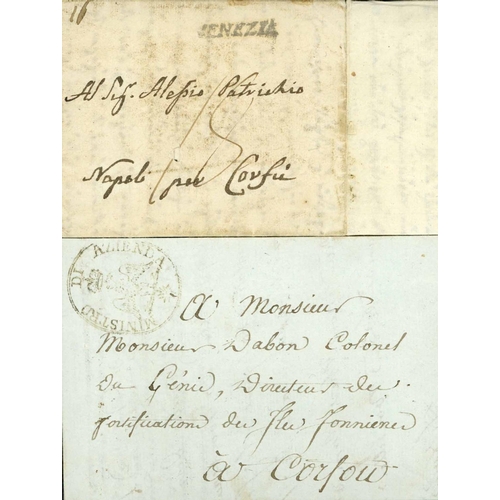 16
VENEZIA
Al Sig. Alessio Patrichio
Napoli per Corfù
DI AZIENDA
MINISTRO
A Monsieur
Monsieur Dabon Colonel
du Génie, Directeur des
fortification des Iles Jonniene
à Corfou